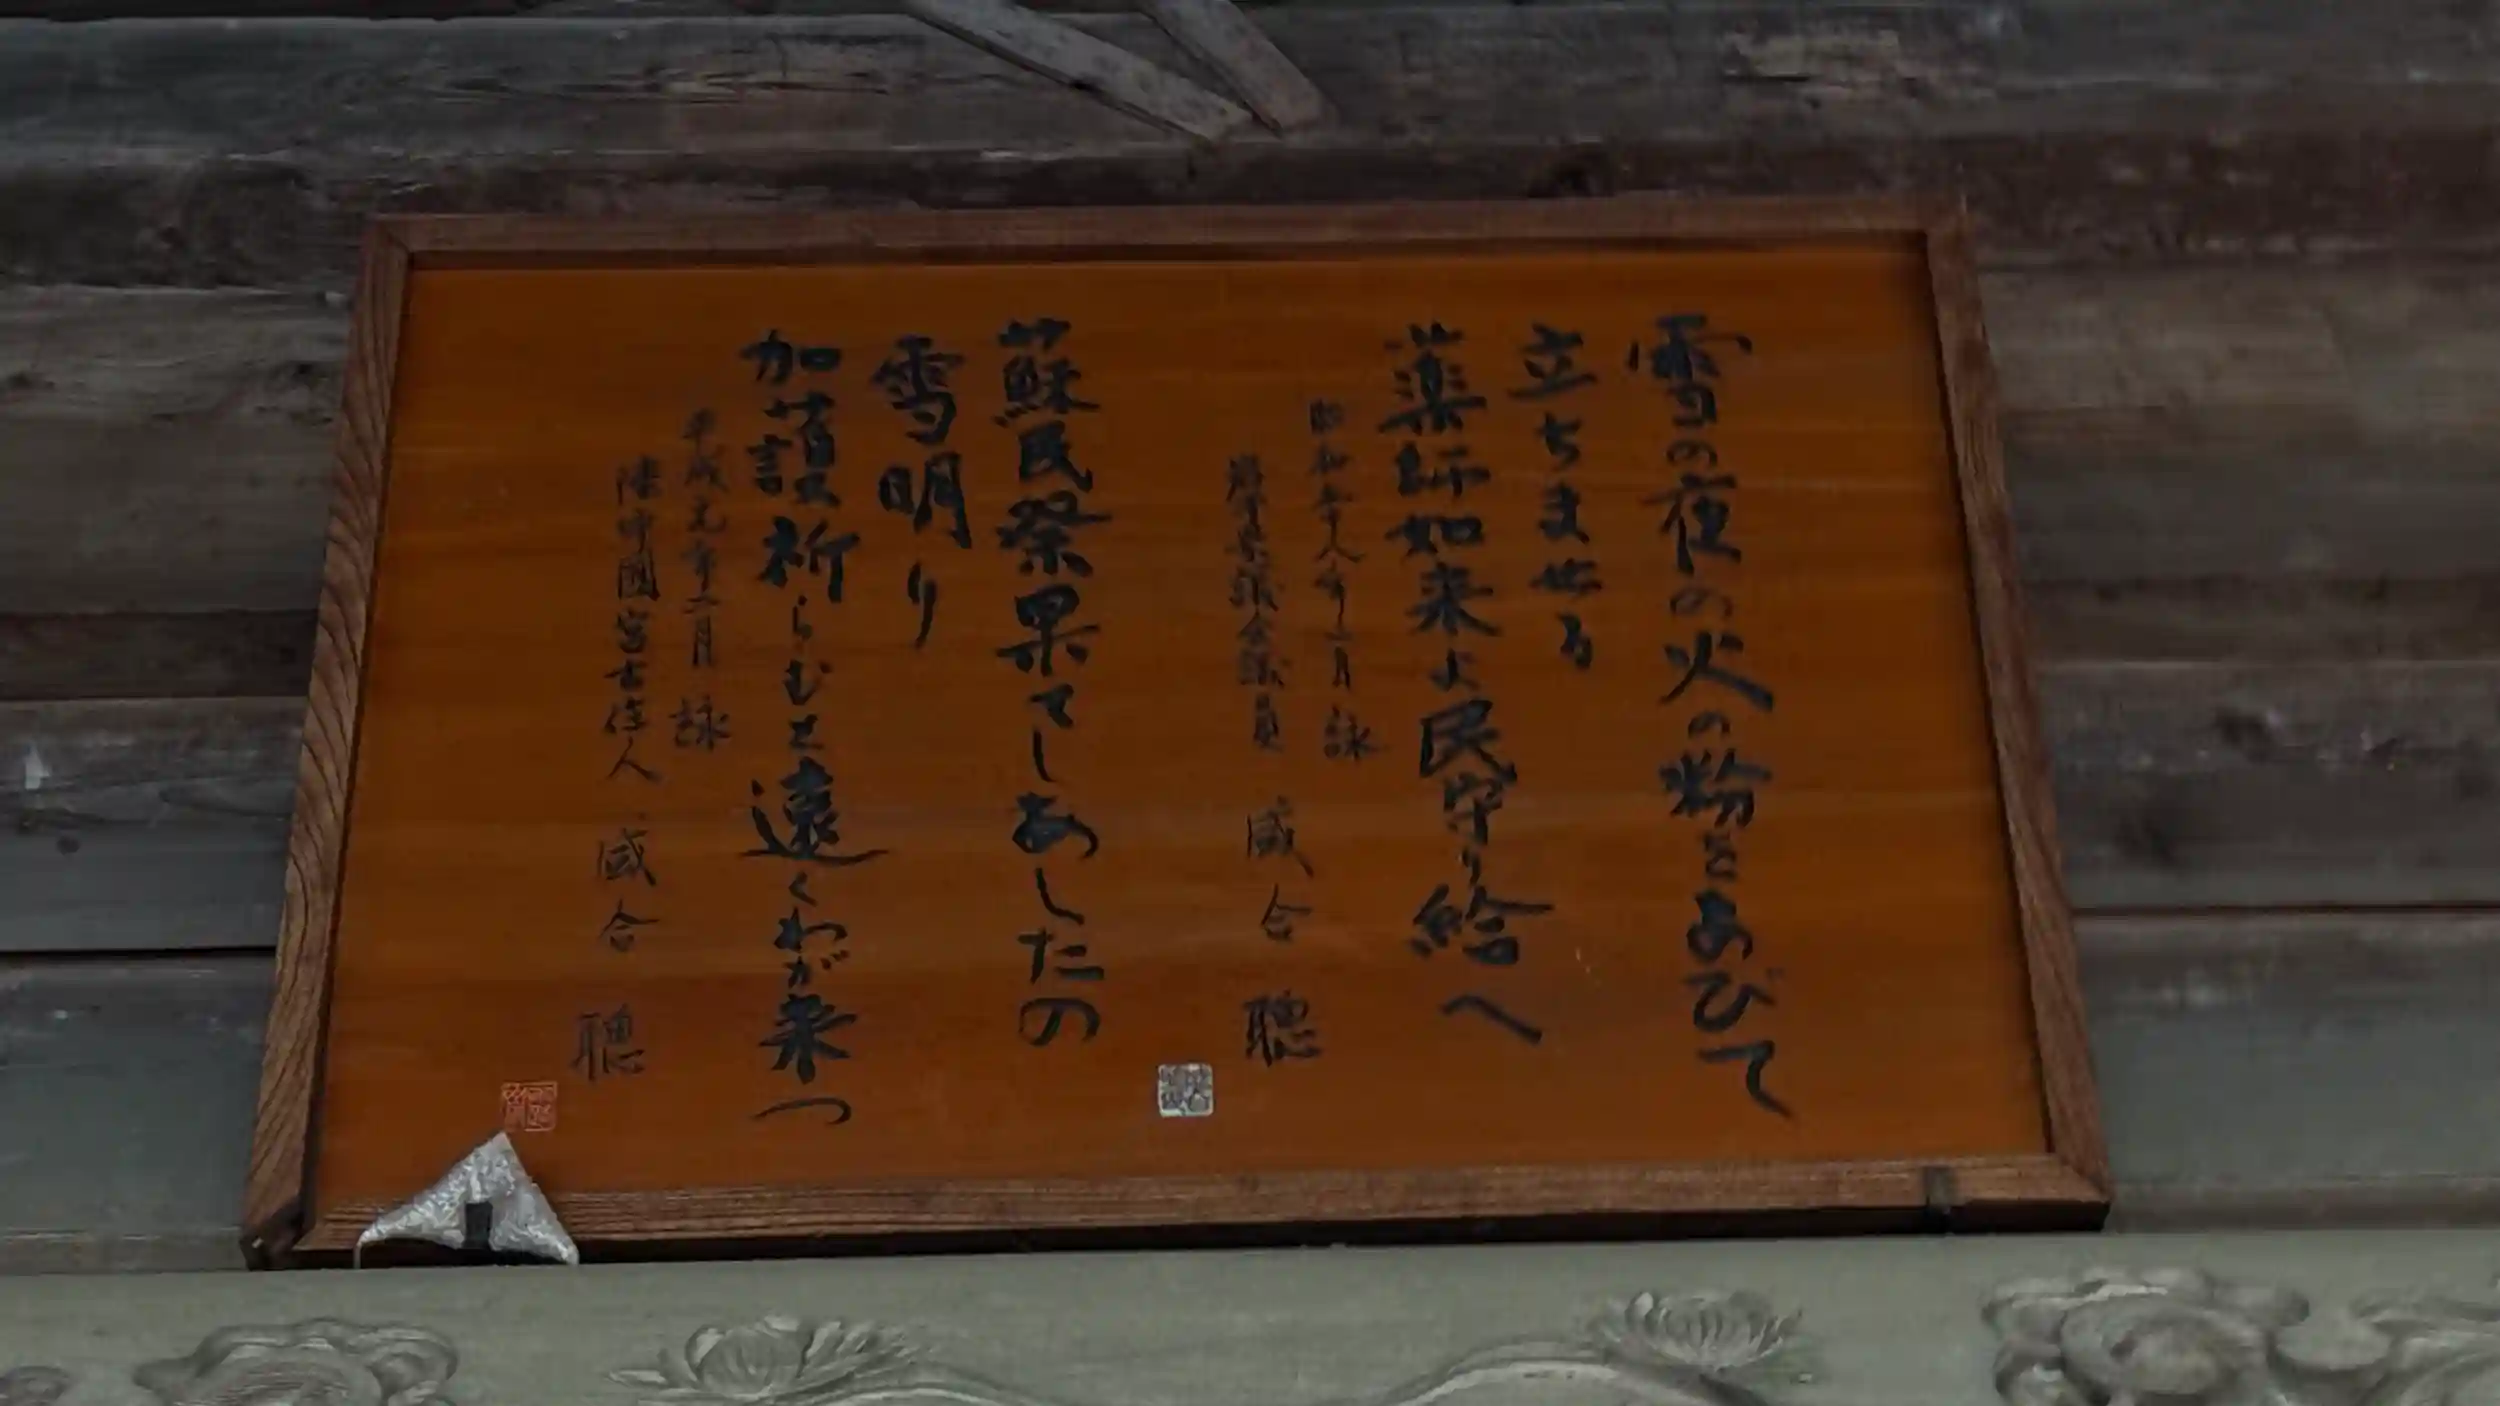 雪の夜の火の粉をあびて
立ちませる
薬師如来よ民守り給へ
昭和六十八年二月 詠
岩手県議会議員 盛合 聰
蘇民祭果てしあしたの
雪明り
加護祈らむと遠くわが来つ
平成元年二月 詠
陸中國宮古住人 盛合 聰